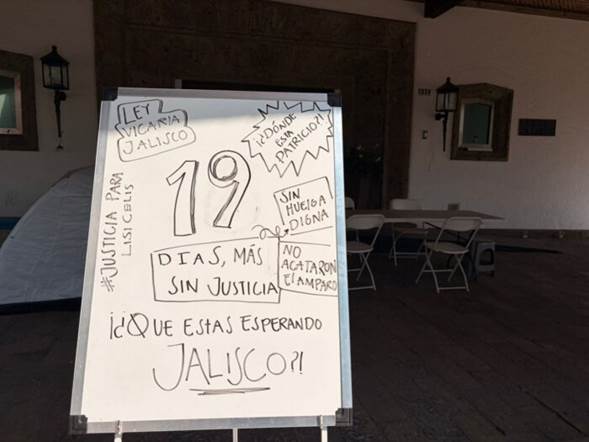 LEY
VICARIA
JALISCO
¡¿DÓNDE
ESTA
PATRICIO?!
#JUSTICIA PARA
LISI CELIS
19
SIN
HUELGA
DIGNA
DIAS, MÁS
SIN JUSTICIA
NO
ACATARON
El AMPARO
¡¿QUE ESTAS ESPERANDO
JALISCO?!